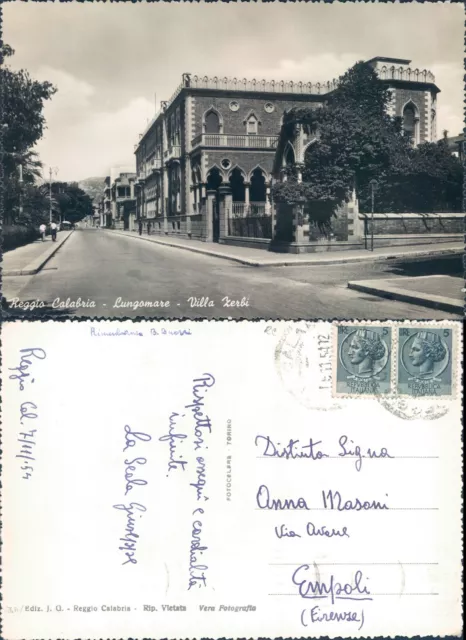 Reggio Calabria - Lungomare - Villa Zerbi
Rimembranza
Reggio Cal. 7/11/54
Rispettosi ossequi e cordialità
infinite.
La Scala Giuseppe
FOTOCELERE TORINO
Distinta Sig.na
Anna Masoni
Via
Empoli
(Firenze)
Ediz. J. O. - Reggio Calabria - Rip. Vietata Vera Fotografia